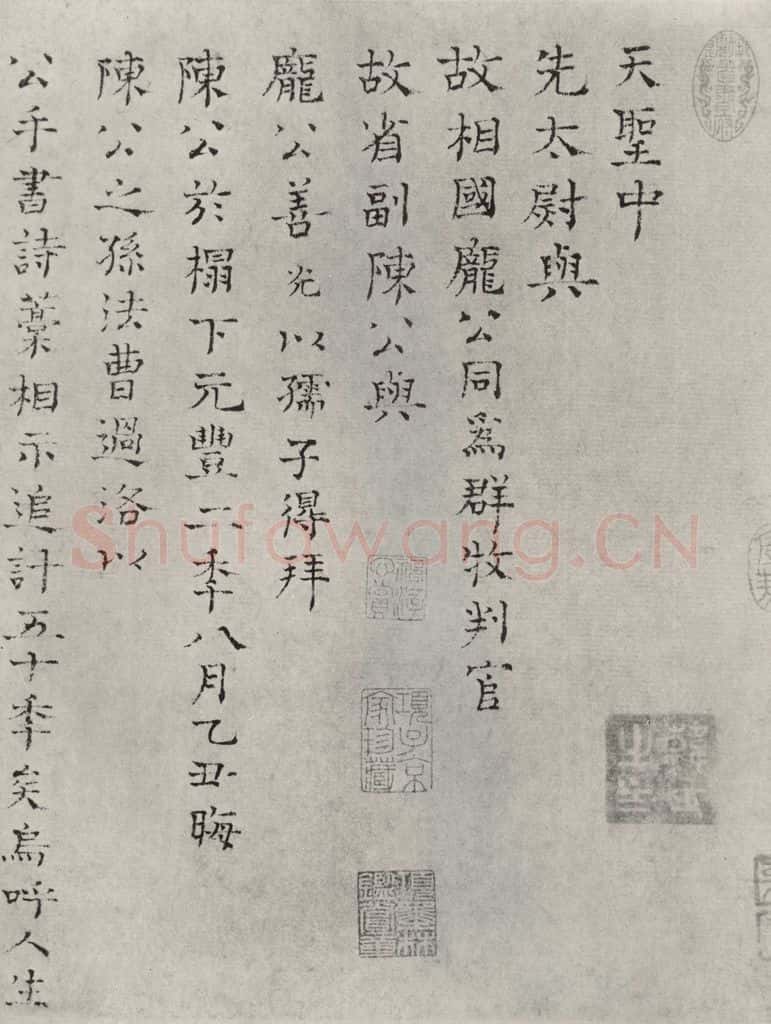 天聖中
先太尉與
故相國龐公同爲群牧判官
故省副陳公與
龐公善光以孺子得拜
陳公於榻下元豐二秊八月乙丑晦
陳公之孫法曹過洛以
公手書詩藁相示追計五十秊矣烏呼人生
項子京家珍藏
項墨林鑑賞章
Shufawang.CN